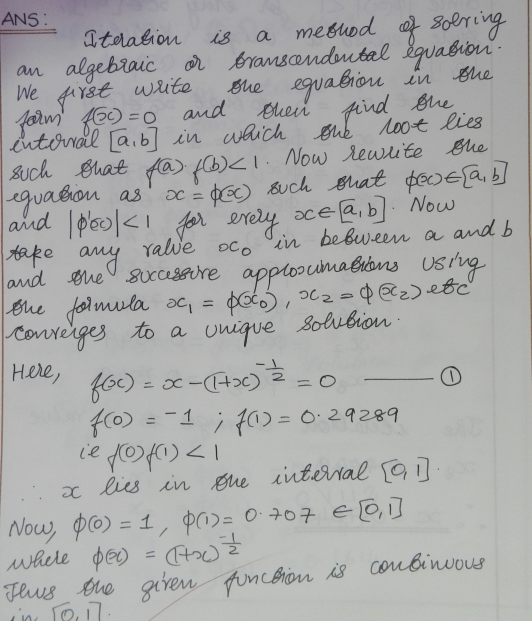 ANS:
Iteration is a method of solving
an algebraic or transcendental equation.
We first write the equation in the
form f(x)=0 and then find the
interval [a,b] in which the root lies
such that f(a)·f(b)<1. Now rewrite the
equation as x=ϕ(x) such that ϕ(x)∈[a,b]
and |ϕ'(x)|<1 for every x∈[a,b]. Now
take any value x₀ in between a and b
and the successive approximations using
the formula x₁ = ϕ(x₀), x₂ = ϕ(x₂) etc
converges to a unique solution.
Here,
f(x) = x-(1+x)^{-1/2} = 0 —— ①
f(0) = -1 ; f(1) = 0.29289
ie f(0)f(1) < 1
∴ x lies in the interval [0,1].
Now, ϕ(0) = 1, ϕ(1) = 0.707 ∈ [0,1]
where ϕ(x) = (1+x)^{-1/2}
Thus the given function is continuous
in [0,1].